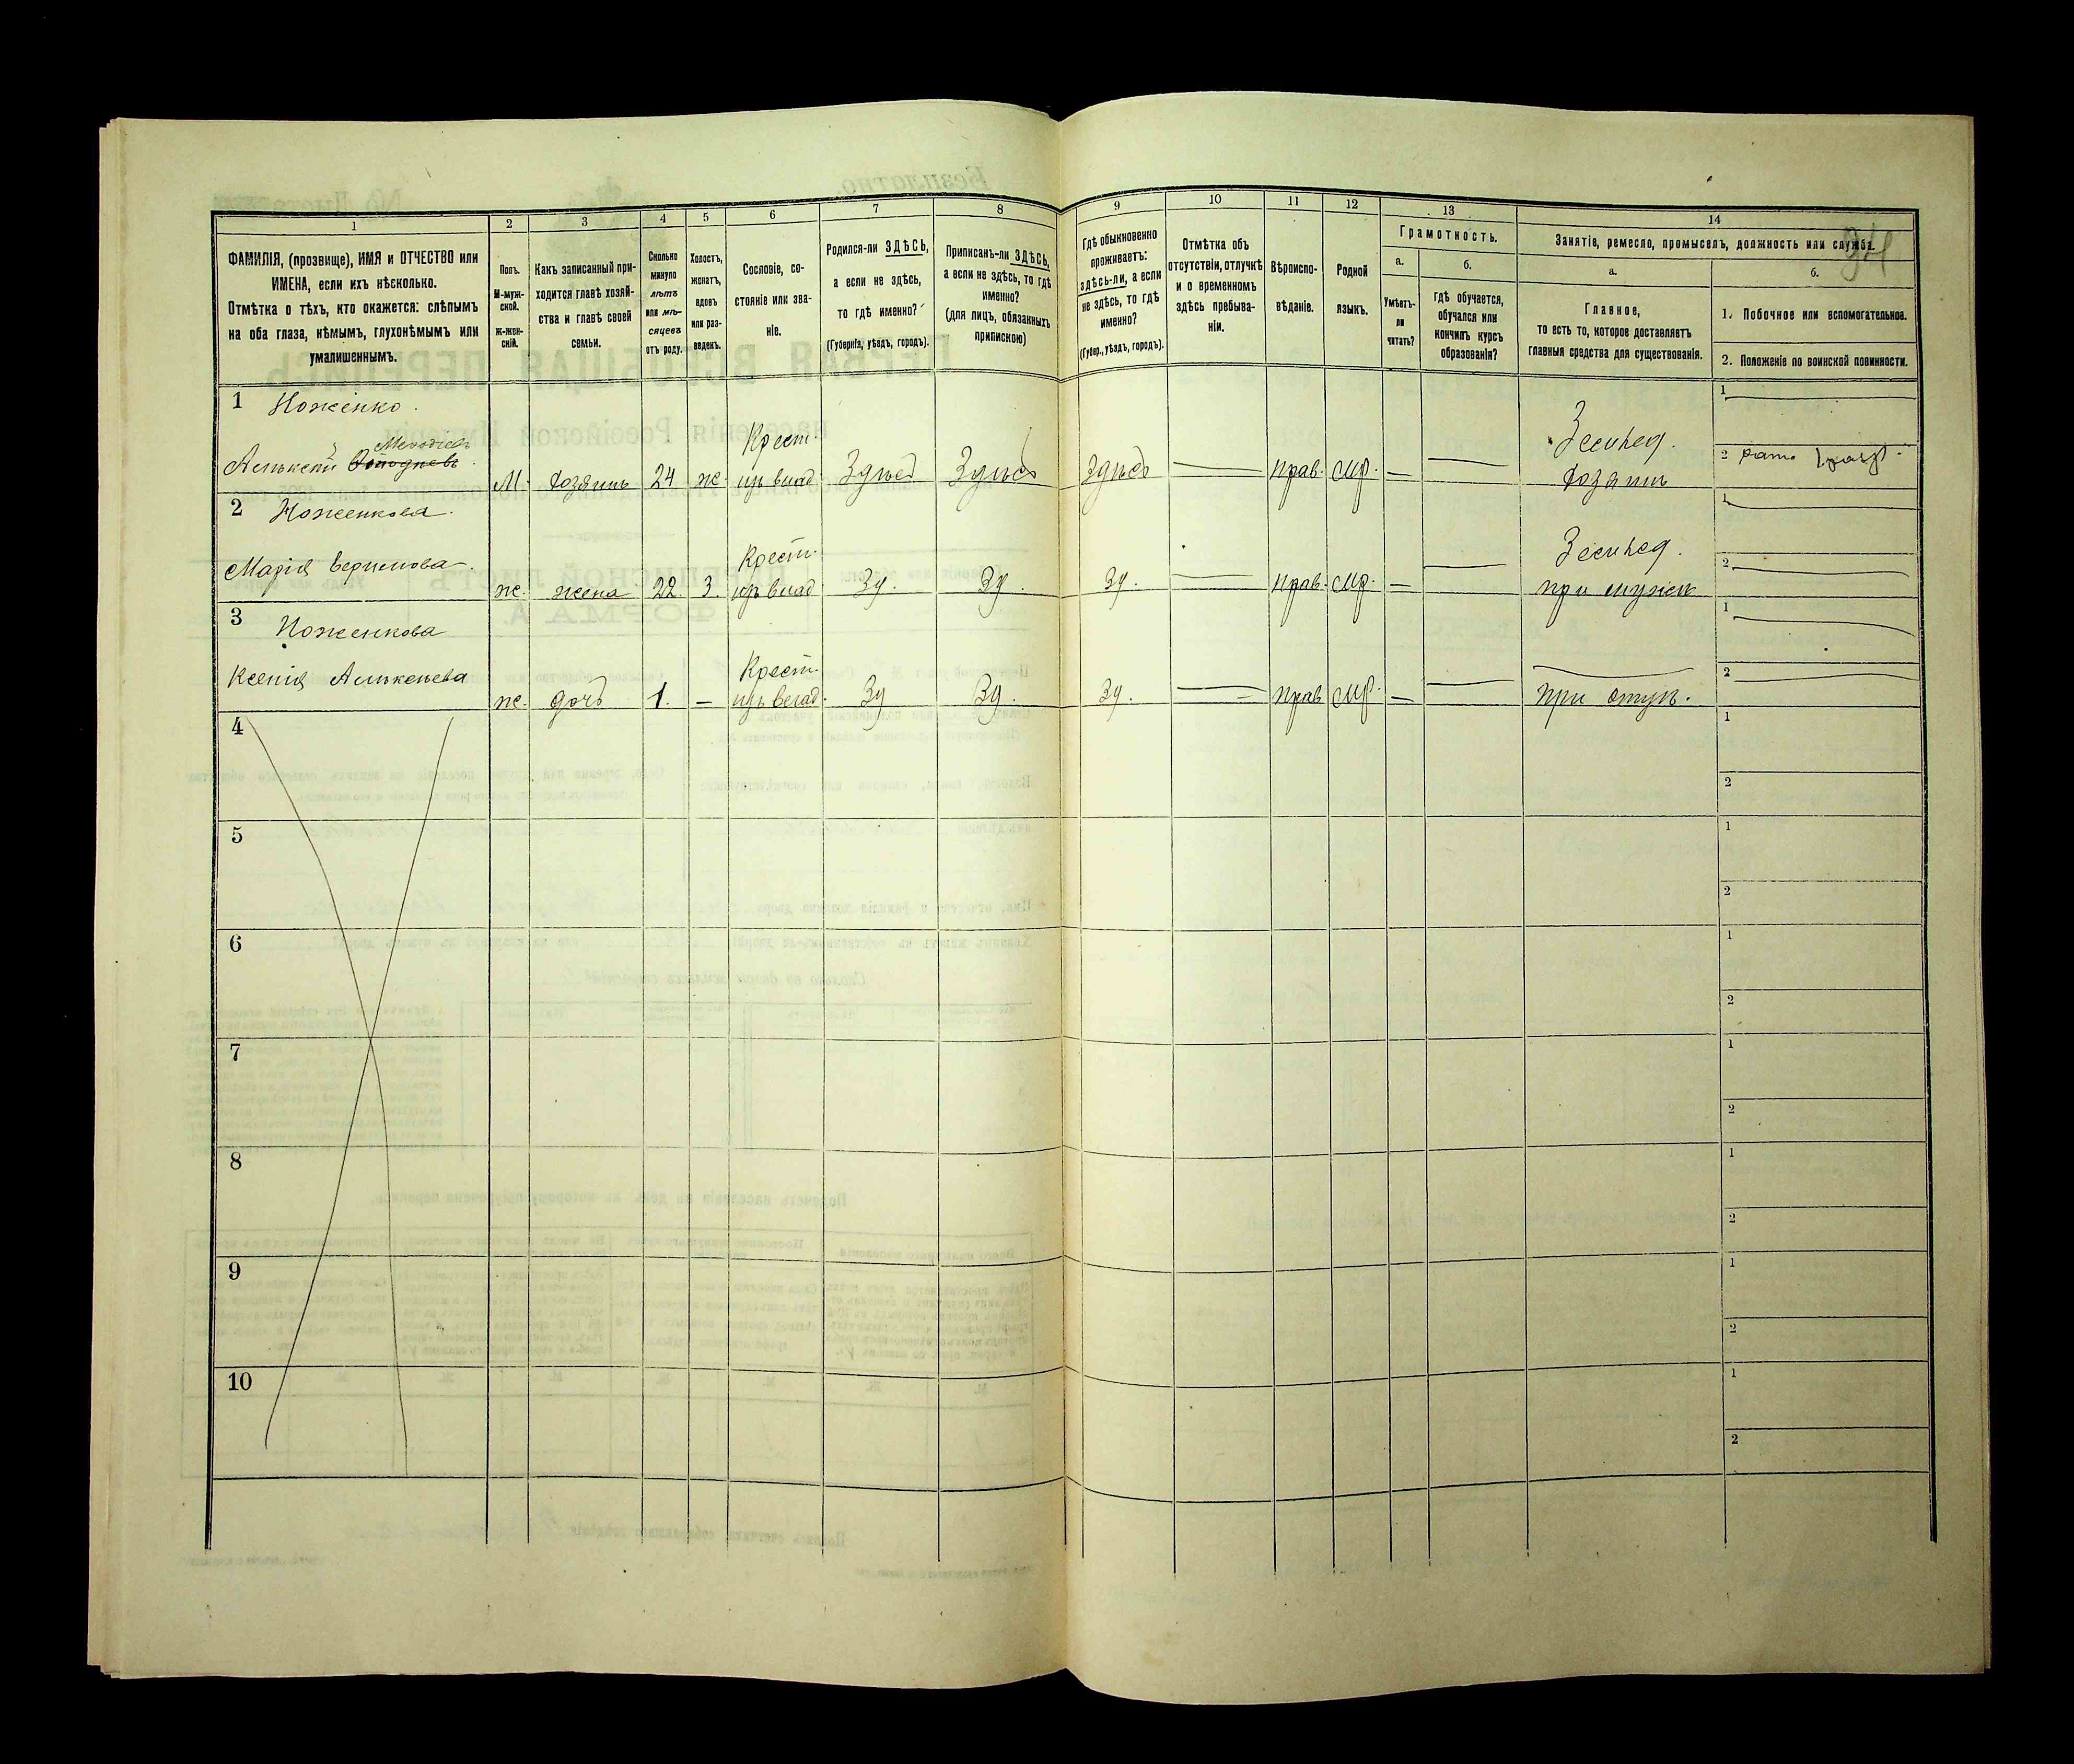 94
1 2 3 4 5 6 7 8 9 10 11 12 13 14
ФАМИЛІЯ, (прозвище), ИМЯ и ОТЧЕСТВО или
ИМЕНА, если ихъ нѣсколько.
Отмѣтка о тѣхъ, кто окажется: слѣпымъ
на оба глаза, нѣмымъ, глухонѣмымъ или
умалишеннымъ.
Полъ.
М-муж-
ской.
ж-жен-
скій.
Какъ записанный при-
ходится главѣ хозяй-
ства и главѣ своей
семьи.
Сколько
минуло
лѣтъ
или мѣ-
сяцевъ
отъ роду.
Холостъ,
женатъ,
вдовъ
или раз-
веденъ.
Сословіе, со-
стояніе или зва-
ніе.
Родился-ли ЗДѢСЬ,
а если не здѣсь,
то гдѣ именно?
(Губернія, уѣздъ, городъ).
Приписанъ-ли ЗДѢСЬ,
а если не здѣсь, то гдѣ
именно?
(для лицъ, обязанныхъ
припискою)
Гдѣ обыкновенно
проживаетъ:
здѣсь-ли, а если
не здѣсь, то гдѣ
именно?
(Губер., уѣздъ, городъ).
Отмѣтка объ
отсутствіи, отлучкѣ
и о временномъ
здѣсь пребыва-
ніи.
Вѣроиспо-
вѣданіе.
Родной
языкъ.
Грамотность.
а.
Умѣетъ-
ли
читать?
б.
гдѣ обучается,
обучался или
кончилъ курсъ
образованія?
Занятіе, ремесло, промыселъ, должность или служба.
а.
Главное,
то есть то, которое доставляетъ
главныя средства для существованія.
б.
1. Побочное или вспомогательное.
2. Положеніе по воинской повинности.
1 Ноженко.
Крест. Земпед. 1
Алексѣй
М. Хозяинъ 24 ж. изъ влад. Здѣсь Здѣсь Здѣсь — прав. мр. — — Хозяинъ 2
2 Ноженкова.
Крест. Земпед. 1
Марія
ж. жена 22. З. изъ влад. Зд. Зд. Зд. — прав. мр. — — при мужѣ 2
3 Ноженкова
Крест. 1
Ксенія Алексѣева
ж. дочь 1. — изъ влад. Зд Зд. Зд. — прав мр. — — при отцѣ. 2
4 1
2
5 1
2
6 1
2
7 1
2
8 1
2
9 1
2
10 1
2